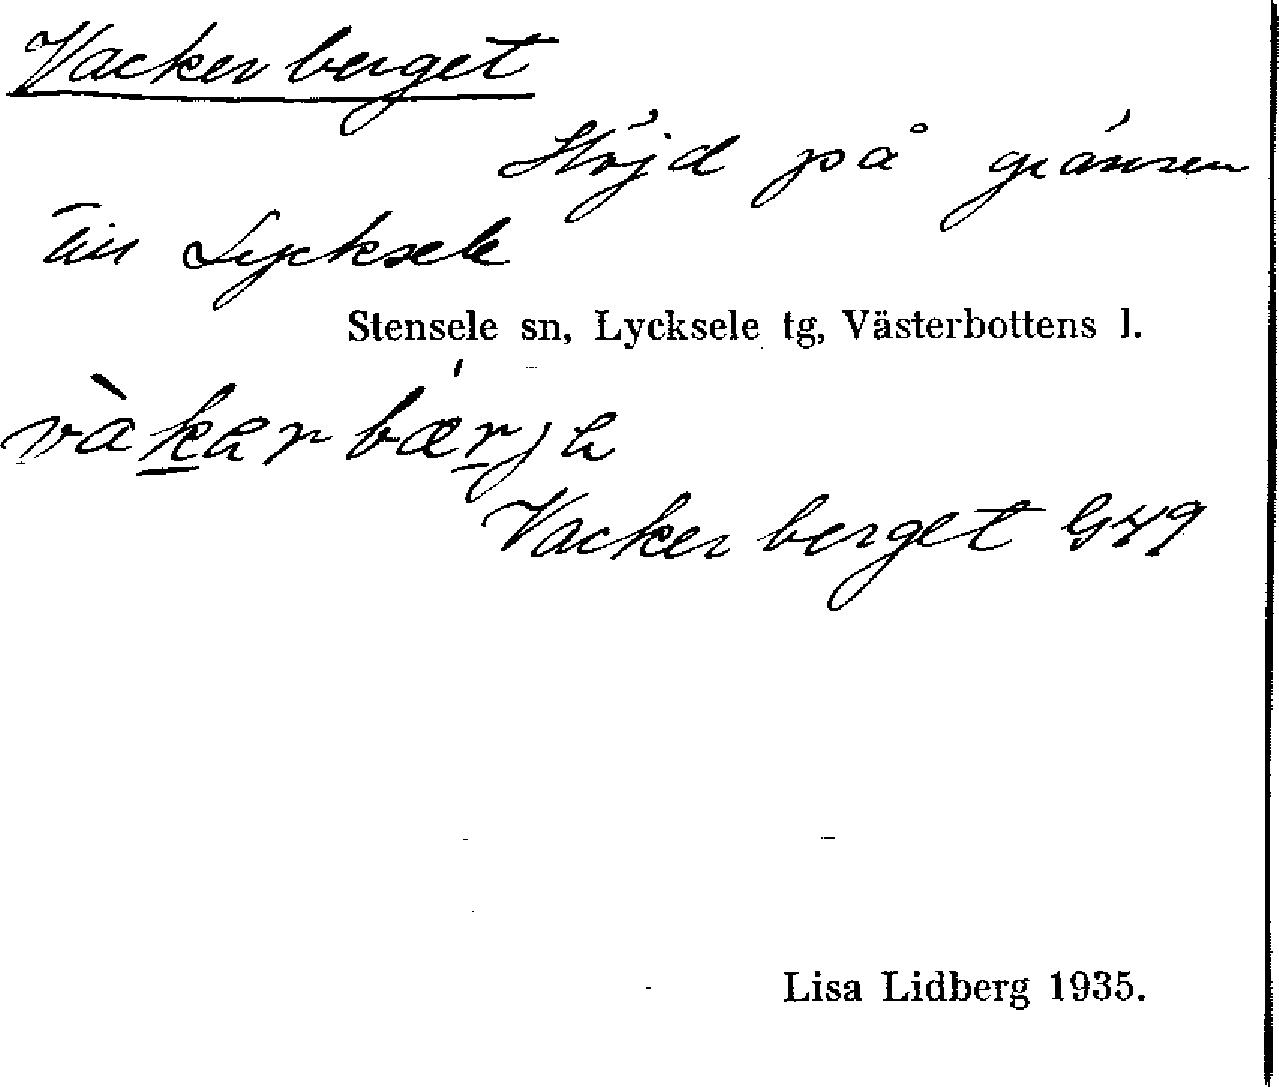 Vackerberget
Höjd på gränsen
till Lycksele
Stensele sn, Lycksele tg, Västerbottens l.
vàkarbærja
Vackerberget G49
Lisa Lidberg 1935.